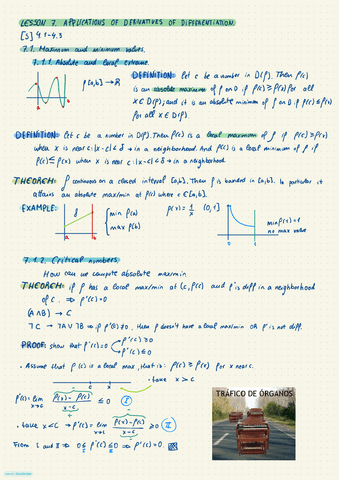 LESSON 7. APPLICATIONS OF DERIVATIVES OF DIFFERENTIATION.
[S] 4.1-4.3
7.1. Maximum and minimum values.
7.1.1. Absolute and local extreme.
f [a,b] → R
DEFINITION: let c be a number in D(f). Then f(c)
is an absolute maximum of f on D if f(c) ≥ f(x) for all
x ∈ D(f); and it is an absolute minimum of f on D if f(c) ≤ f(x)
for all x ∈ D(f).
a b
DEFINITION: let c be a number in D(f). Then f(c) is a local maximum of f if f(c) ≥ f(x)
when x is near c: |x-c| < δ → in a neighborhood. And f(c) is a local minimum of f if
f(c) ≤ f(x) when x is near c: |x-c| < δ → in a neighborhood.
THEOREM: f continuous on a closed interval [a,b]. Then f is bounded in [a,b]. In particular it
attains an absolute max/min at f(c) where c ∈ [a,b].
EXAMPLE:
min f(a)
max f(b)
a b
f(x) = 1/x (0,1]
min f(1) = 1
no max value
0 1
7.1.2. Critical numbers.
How can we compute absolute max/min
THEOREM: if f has a local max/min at (c, f(c)) and f is diff in a neighborhood
of c. ⇒ f'(c) = 0
(A ∧ B) → C
¬C → ¬A ∨ ¬B ⇒ if f'(c) ≠ 0, then f doesn't have a local max/min OR f is not diff.
PROOF: show that f'(c) = 0
f'(c) ≥ 0
f'(c) ≤ 0
• Assume that f(c) is a local max, that is: f(c) ≥ f(x) for x near c.
c x
• take x > c
f'(c) = lim x→c f(x) - f(c) / x - c ≤ 0 I
• take x < c → f'(c) = lim x→c f(x) - f(c) / x - c ≥ 0 II
From I and II ⇒ 0 ≤ f'(c) ≤ 0 ⇒ f'(c) = 0.
TRÁFICO DE ÓRGANOS